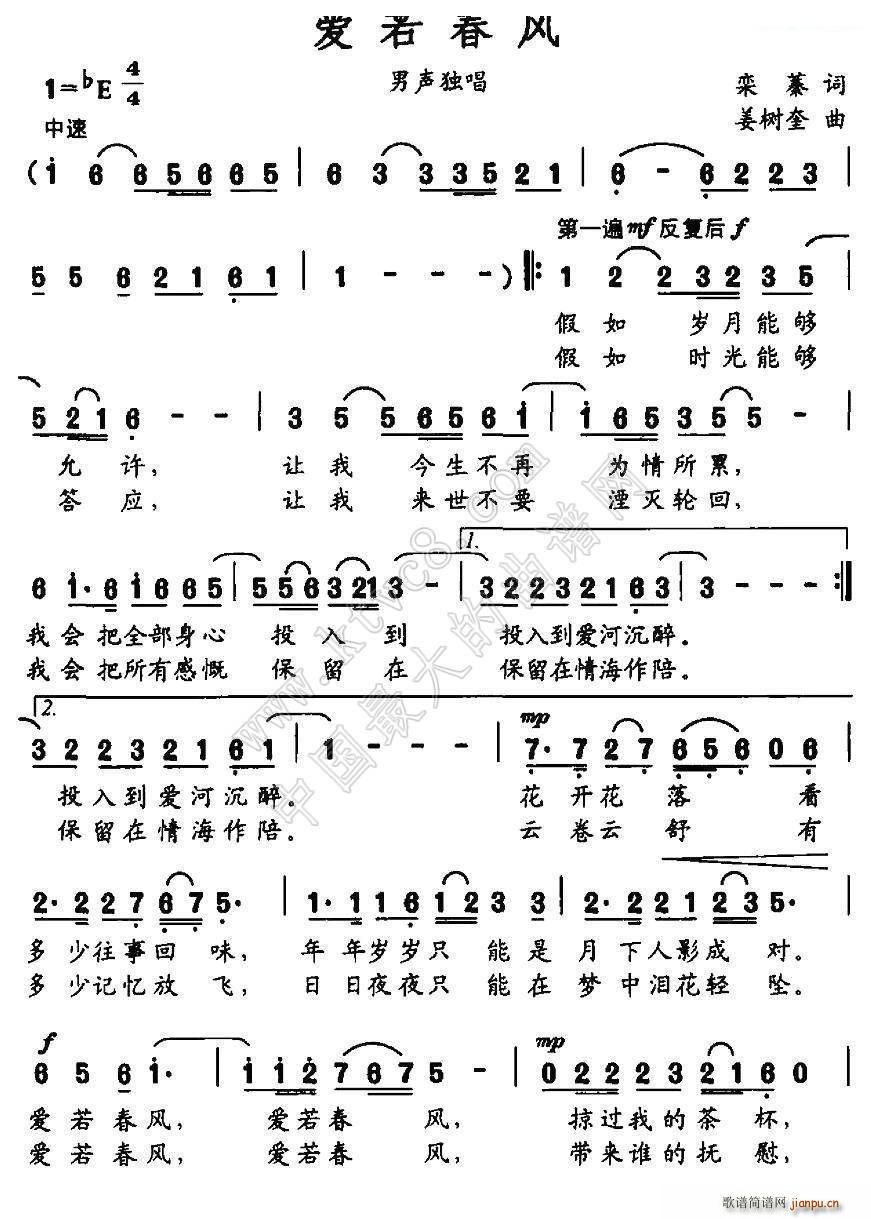 爱若春风
1=♭E 4/4 男声独唱 栾蓁 词
中速 姜树奎 曲
( i 6 6 5 6 6 5 | 6 3 3 3 5 2 1 | 6 - 6 2 2 3 |
第一遍mf 反复后f
5 5 6 2 1 6 1 | 1 - - - ) ‖: 1 2 2 3 2 3 5 |
假如 岁月能够
假如 时光能够
5 2 1 6 - - | 3 5 5 6 5 6 i | i 6 5 3 5 5 - |
允许, 让我 今生不再 为情所累,
答应, 让我 来世不要 湮灭轮回,
1.
6 i· 6 i 6 6 5 | 5 5 6 3 2 1 3 - | 3 2 2 3 2 1 6 3 | 3 - - - :‖
我会把全部身心 投入到 投入到爱河沉醉。
我会把所有感慨 保留在 保留在情海作陪。
2. mp
3 2 2 3 2 1 6 1 | 1 - - - | 7· 7 2 7 6 5 6 0 6 |
投入到爱河沉醉。 花开花落 看
保留在情海作陪。 云卷云舒 有
2· 2 2 7 6 7 5· | 1· 1 1 6 1 2 3 3 | 2· 2 2 1 2 3 5· |
多少往事回味, 年年岁岁只能是月下人影成对。
多少记忆放飞, 日日夜夜只能在梦中泪花轻坠。
f mp
6 5 6 i· | i i 2 7 6 7 5 - | 0 2 2 2 2 3 2 1 6 0 |
爱若春风, 爱若春风, 掠过我的茶杯,
爱若春风, 爱若春风, 带来谁的抚慰,
www.ktvc8.com
中国最大的曲谱网
歌谱简谱网
jianpu.cn